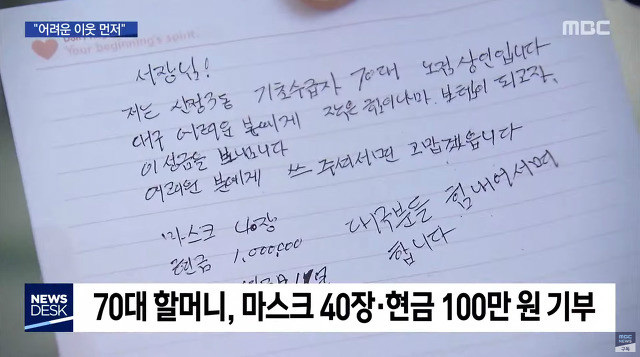 "어려운 이웃 먼저"
MBC
Your beginning's spirit.
서장님!
저는 산정3동 기초수급자 70대 노점상인입니다
대구 어려운 분에게 작은 힘이나마 보탬이 되고자
이 성금을 보냅니다
어려원 분에게 쓰 주셔서면 고맙겠읍니다
마스크 40장
현금 1,000,000
대구분들 힘내어서면
합니다
NEWS DESK
70대 할머니, 마스크 40장·현금 100만 원 기부
MBC NEWS
구독